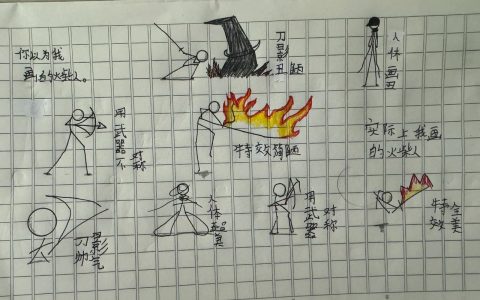 你以为我
画的火柴人。
刀影丑陋
人体画丑
用武器不对称
特效简陋
实际上我画
的火柴人
刀影帅气
人体超美
用武器对称
特效全美